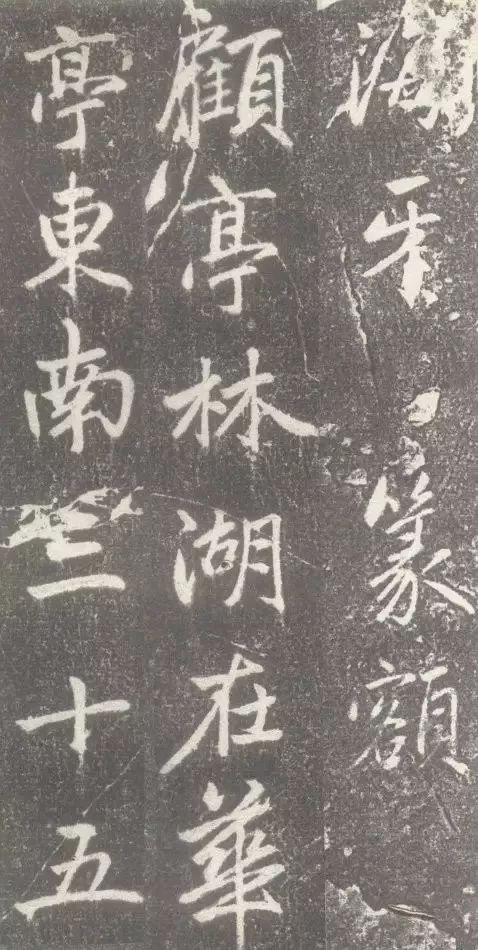 海牙篆額
顧亭林湖在華
亭東南三十五